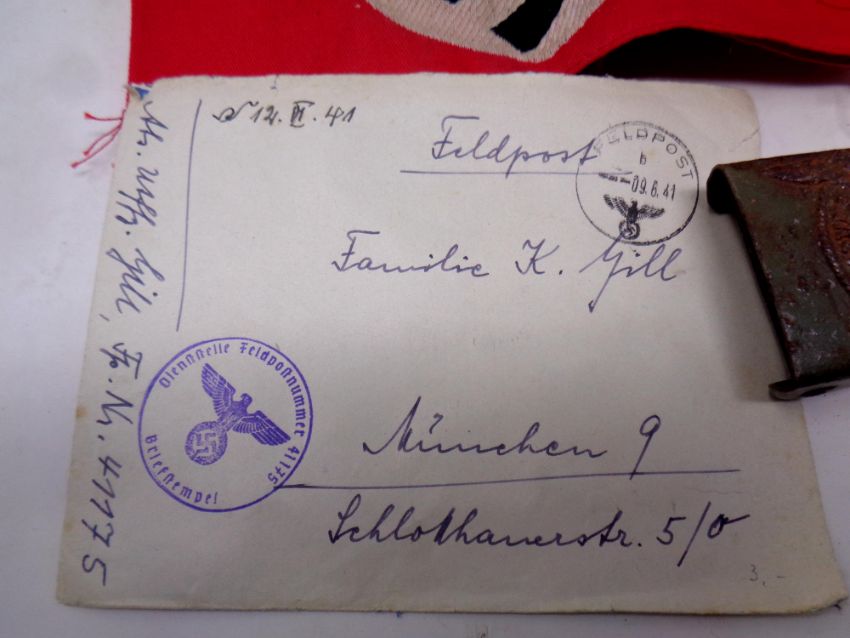 12. VI. 41
Feldpost
FELDPOST
b
09.6.41
Familie K. Gill
München 9
Schlotthauerstr. 5/0
Abs. Uffz. Gill, Fp. Nr. 41175
Dienststelle Feldpostnummer 41175
Briefstempel
3,-